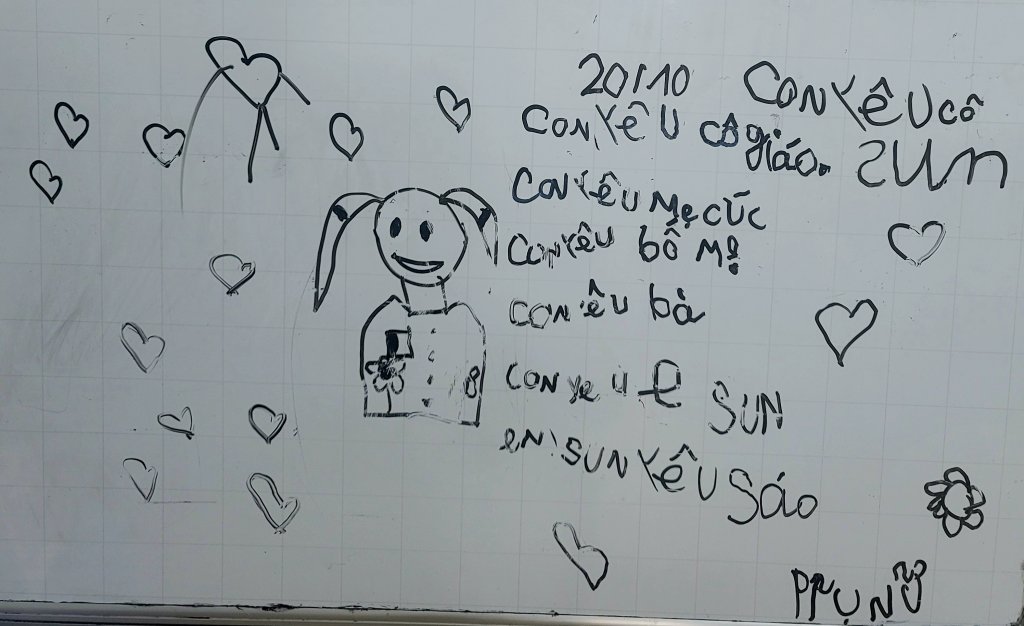 20/10
con yêu cô giáo.
con yêu cô
sun
con yêu mẹ cúc
con yêu bố mẹ
con yêu bà
con ye u
SUN
SUN yêu Sáo
nữ